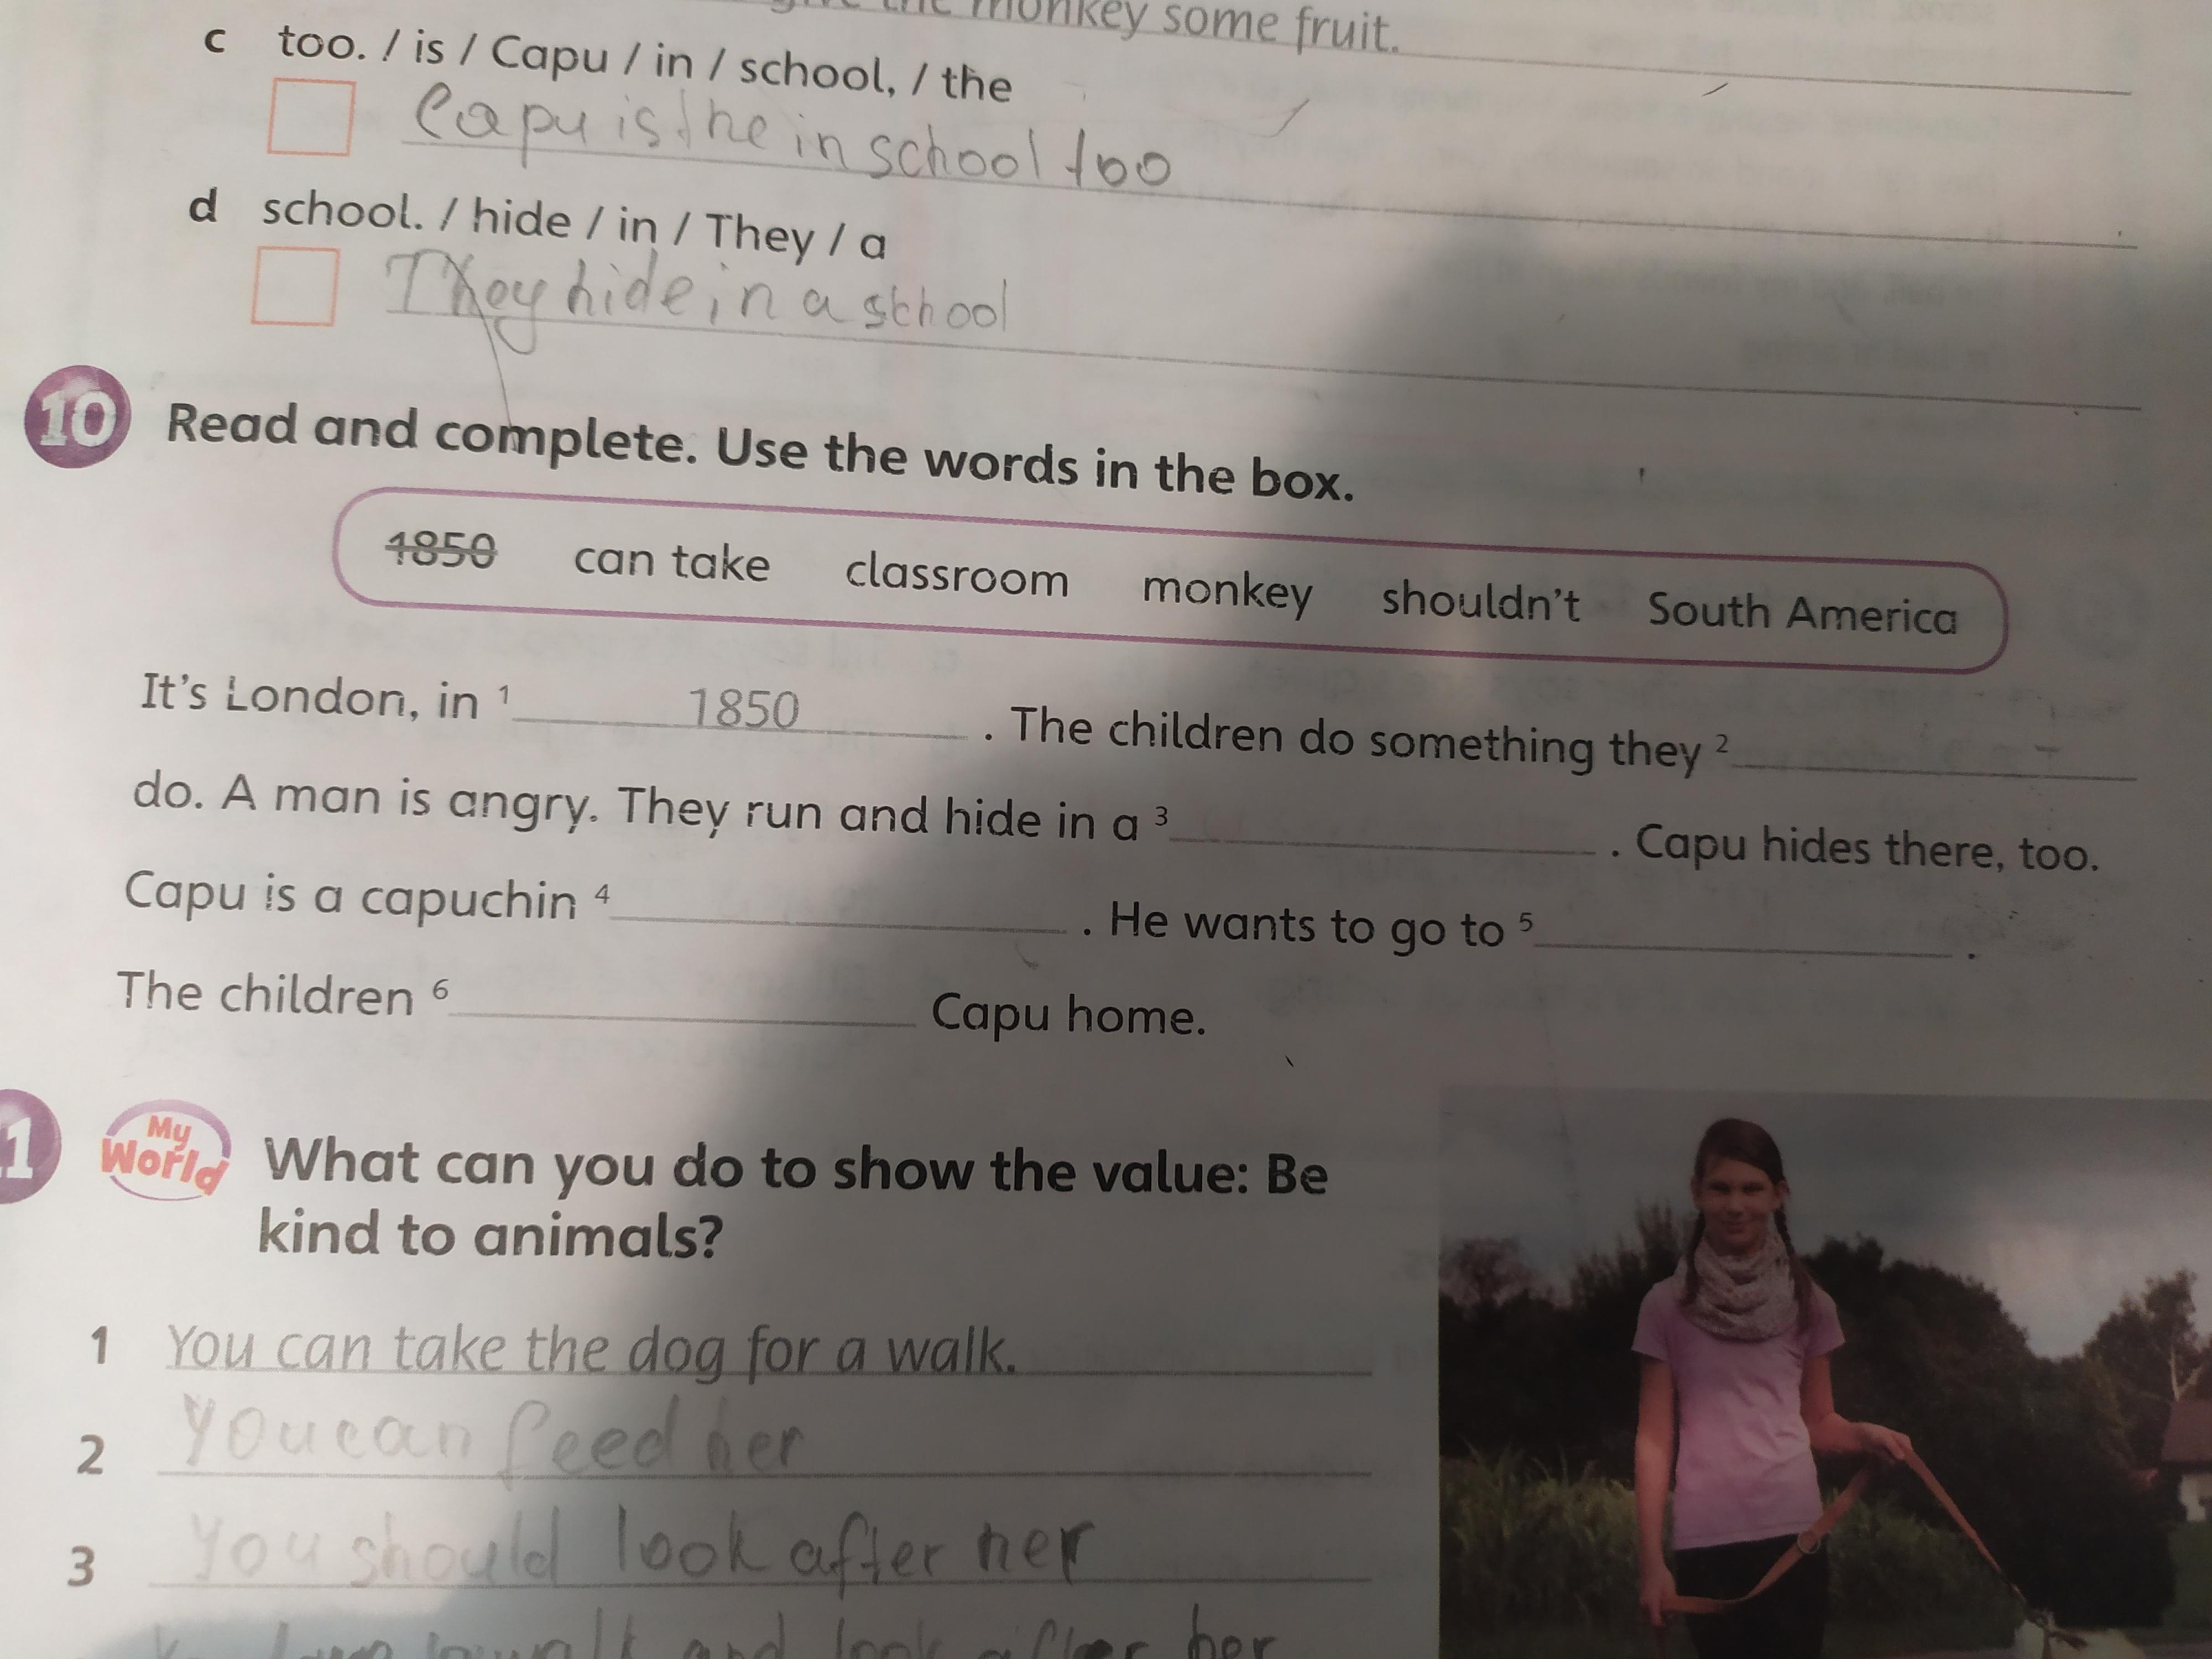 the monkey some fruit.
c too. / is / Capu / in / school, / the
Capu is the in school too
d school. / hide / in / They / a
They hide in a school
10 Read and complete. Use the words in the box.
1850 can take classroom monkey shouldn't South America
It's London, in 1 1850 . The children do something they 2
do. A man is angry. They run and hide in a 3 . Capu hides there, too.
Capu is a capuchin 4 . He wants to go to 5 .
The children 6 Capu home.
1 My World What can you do to show the value: Be
kind to animals?
1 You can take the dog for a walk.
2 You can feed her
3 You should look after her
walk and look after her